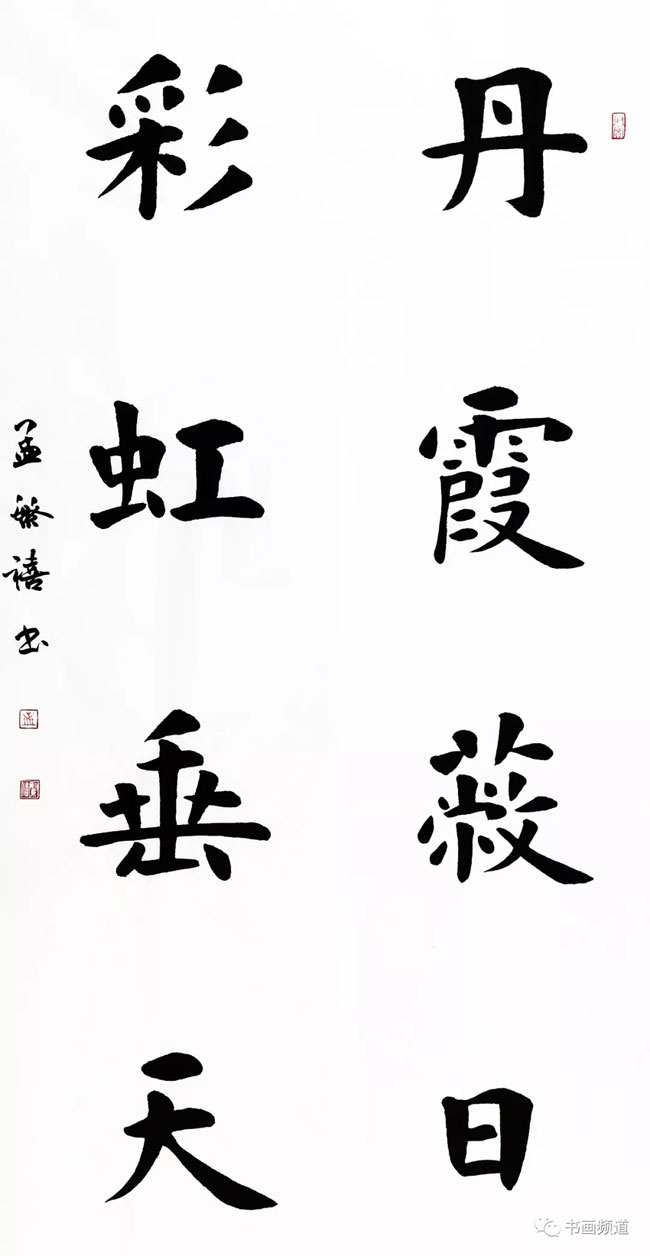 丹霞蔽日
彩虹垂天
孟繁禧书
书画频道